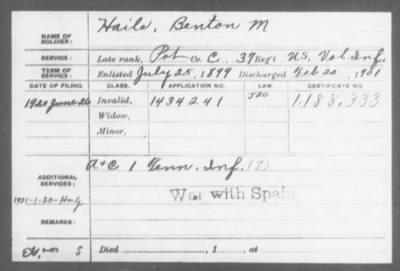 NAME OF SOLDIER: Haile, Benton M
SERVICE: Late rank, Pvt Co. C, 37 Reg't U.S. Vol. Inf.
TERM OF SERVICE: Enlisted July 25, 1899 Discharged Feb 20, 1901
DATE OF FILING. CLASS. APPLICATION NO. LAW. CERTIFICATE NO.
1920 June 26 Invalid, 1434241 J20 1.188,333
Widow,
Minor,
ADDITIONAL SERVICES: A+C 1 Tenn. Inf. (S)
War with Spain
REMARKS:
S Died , 1 , at